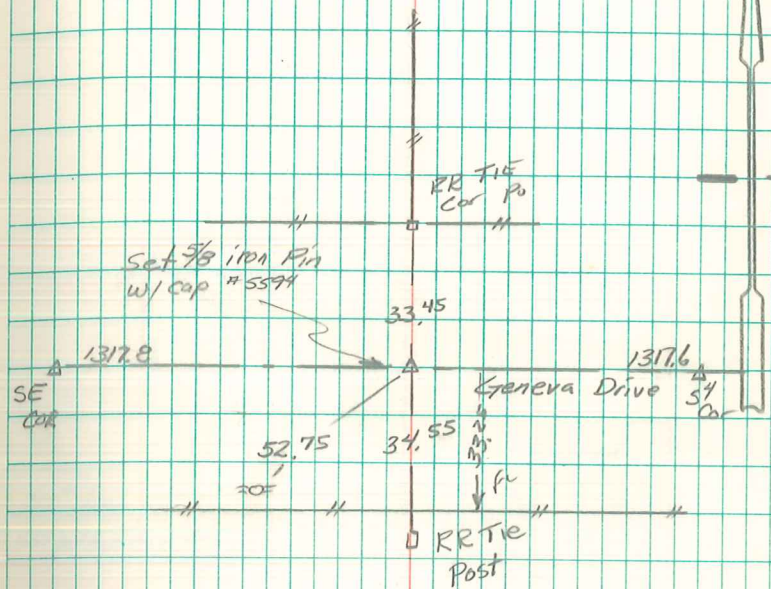 RR TIE
Cor Po
Set 5/8 iron Pin
w/ cap #5594
33.45
1317.8
1317.6
SE
COR
Geneva Drive
S4
Cor
52.75
34.55
33.25
RR Tie
Post